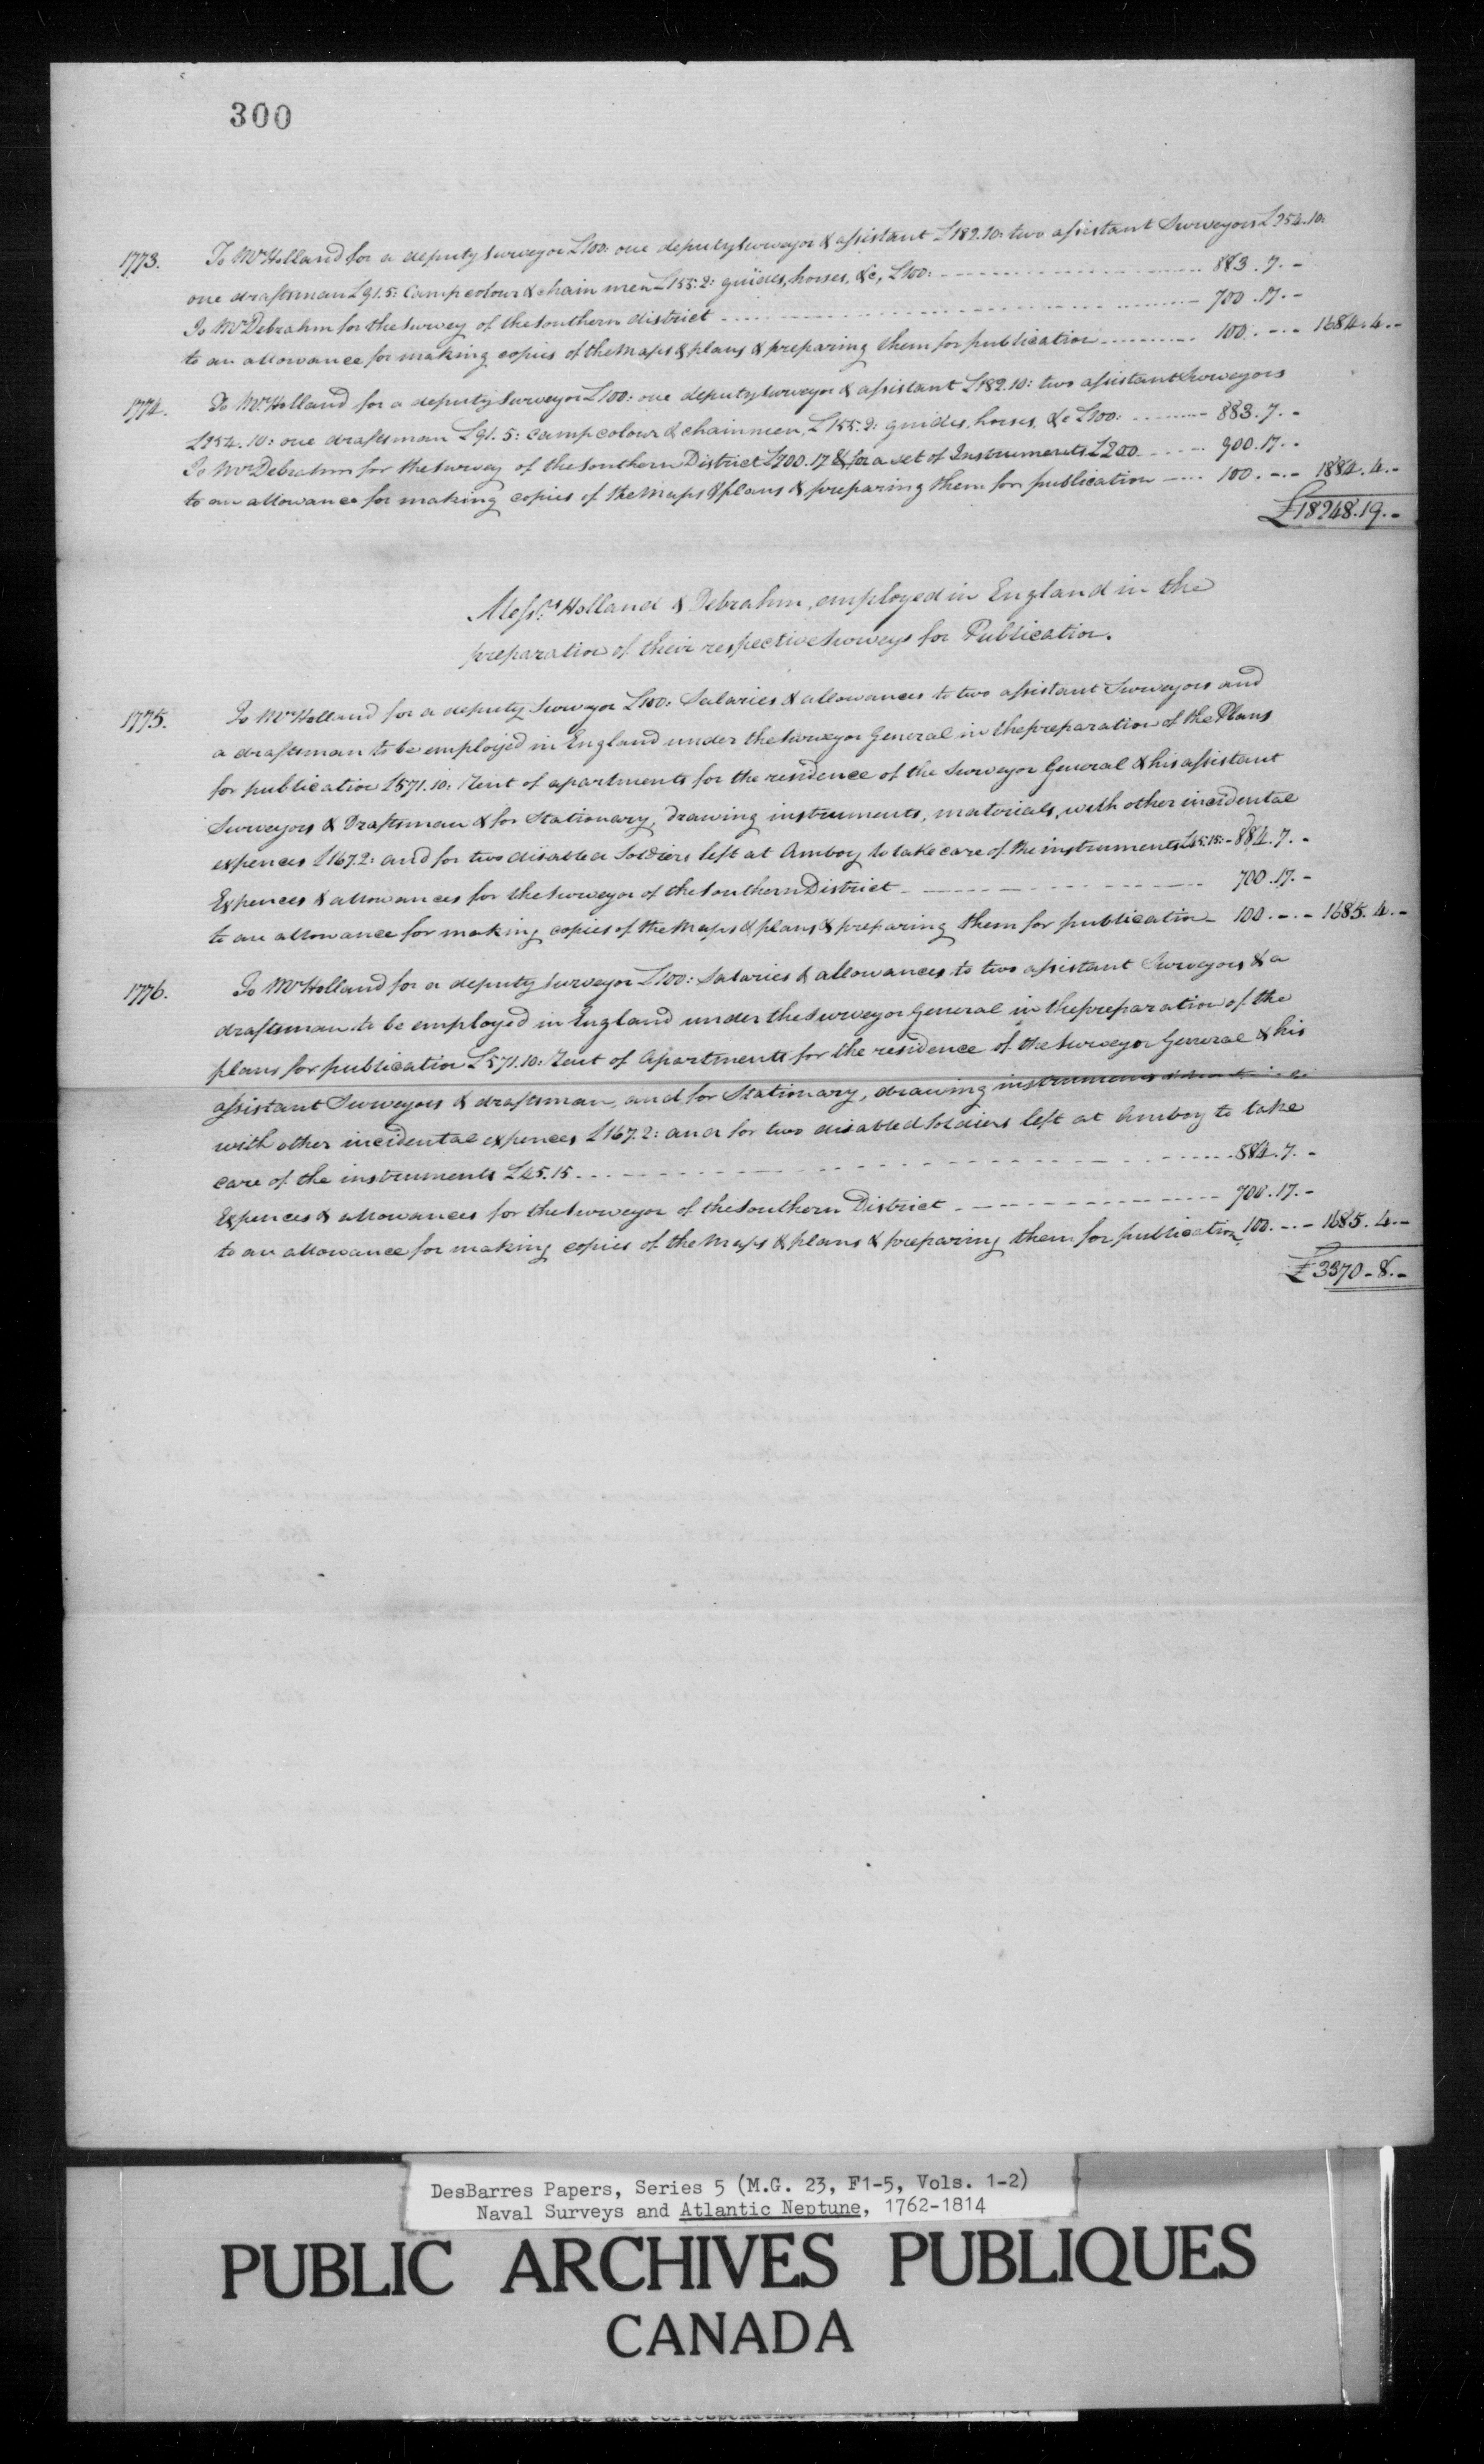 300
1773. To Mr Holland for a deputy Surveyor £100: one deputy Surveyor & assistant £182.10: two assistant Surveyors £254.10:
one draftsman £91.5: Camp colour & chain men £155.2: guides, horses, &c, £100: 883.7.-
To Mr Debrahm for the Survey of the Southern district 700.17.-
to an allowance for making copies of the Maps & plans & preparing them for publication 100.-.- 1684.4.-
1774. To Mr Holland for a deputy Surveyor £100: one deputy Surveyor & assistant £182.10: two assistant Surveyors
£254.10: one draftsman £91.5: Camp colour & chainmen, £155.2: guides, horses, &c £100: 883.7.-
To Mr Debrahm for the Survey of the Southern District £700.17 & for a set of Instruments £200 900.17.-
to an allowance for making copies of the Maps & plans & preparing them for publication 100.-.- 1884.4.-
£18248.19.-
Messrs Holland & Debrahm, employed in England in the
preparation of their respective Surveys for Publication.
1775. To Mr Holland for a deputy Surveyor £100: Salaries & allowances to two assistant Surveyors and
a draftsman to be employed in England under the Surveyor General in the preparation of the Plans
for publication £571.10: Rent of apartments for the residence of the Surveyor General & his assistant
Surveyors & Draftsman & for Stationary, drawing instruments, materials, with other incidental
expences £167.2: and for two disabled Soldiers left at Amboy to take care of the instruments £45.15:- 884.7.-
Expences & allowances for the Surveyor of the Southern District 700.17.-
to an allowance for making copies of the Maps & plans & preparing them for publication 100.-.- 1685.4.-
1776. To Mr Holland for a deputy Surveyor £100: Salaries & allowances to two assistant Surveyors & a
draftsman to be employed in England under the Surveyor General in the preparation of the
plans for publication £571.10: Rent of Apartments for the residence of the Surveyor General & his
assistant Surveyors & draftsman, and for Stationary, drawing instruments
with other incidental expences £167.2: and for two disabled Soldiers left at Amboy to take
care of the instruments £45.15 884.7.-
Expences & allowances for the Surveyor of the Southern District 700.17.-
to an allowance for making copies of the Maps & plans & preparing them for publication 100.-.- 1685.4.-
£3370-8.-
DesBarres Papers, Series 5 (M.G. 23, F1-5, Vols. 1-2)
Naval Surveys and Atlantic Neptune, 1762-1814
PUBLIC ARCHIVES PUBLIQUES
CANADA